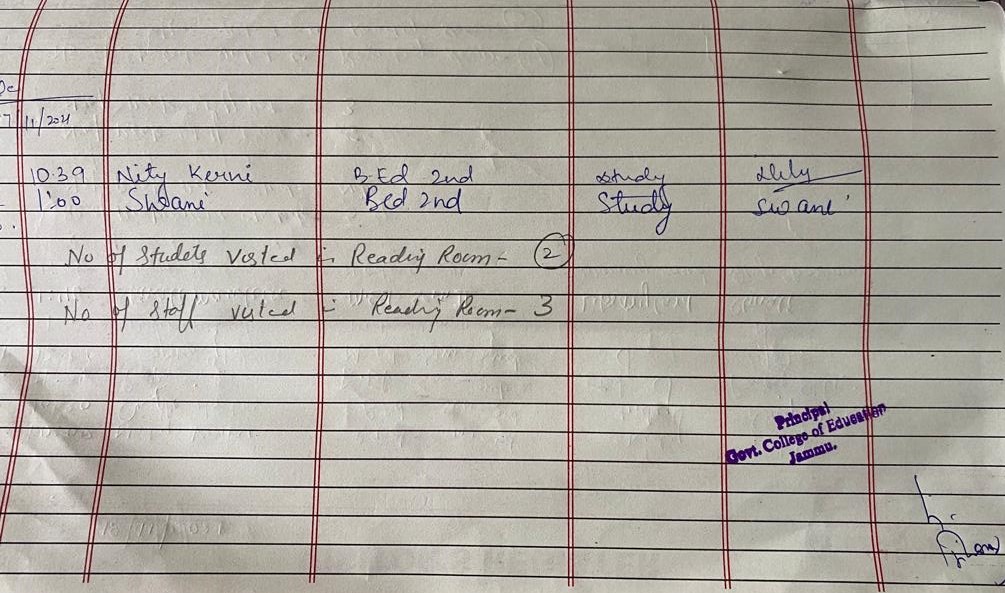 De
7/11/2021
10:39 Nity Kerni B.Ed 2nd study
1:00 Shivani Bed 2nd Study Swani
No of Studets Vested in Readig Room - 2
No of Staff vested in Readig Room - 3
Principal
Govt. College of Education
Jammu.